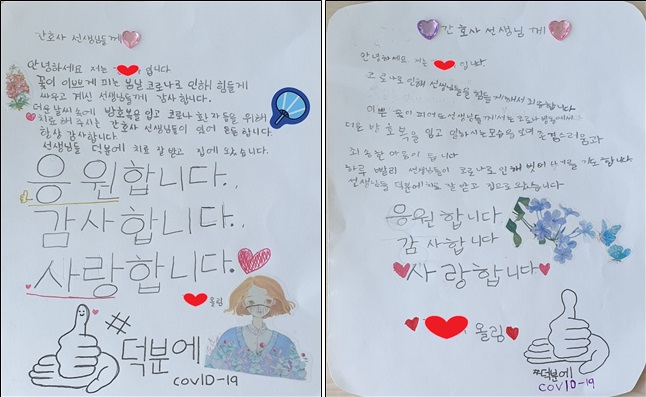 간호사 선생님들께
안녕하세요 저는 입니다
꽃이 이쁘게 피는 봄날 코로나로 인해 힘들게
싸우고 계신 선생님들께 감사 합니다.
더운 날씨 속에 방호복을 입고 코로나 환자들을 위해
치료해 주시는 간호사 선생님들이 있어 든든 합니다
항상 감사합니다
선생님들 덕분에 치료 잘 받고 집에 왔습니다.
응원합니다..
감사합니다..
사랑합니다.
올림
#덕분에
COVID-19
간호사 선생님 께
안녕하세요 저는 입니다
코로나로 인해 선생님들을 힘들게 해서 죄송합니다
이쁜 꽃이 피어도 선생님들께서는
더운 방호복을 입고 일하시는 모습을 보면 존경스러움과
죄송할 마음이 듭니다
하루 빨리 선생님들이 코로나로 인해 벗어 나기를 기도합니다
선생님들 덕분에 치료 잘 받고 집으로 왔습니다
응원합니다
감사합니다
사랑합니다
올림
#덕분에
COVID-19